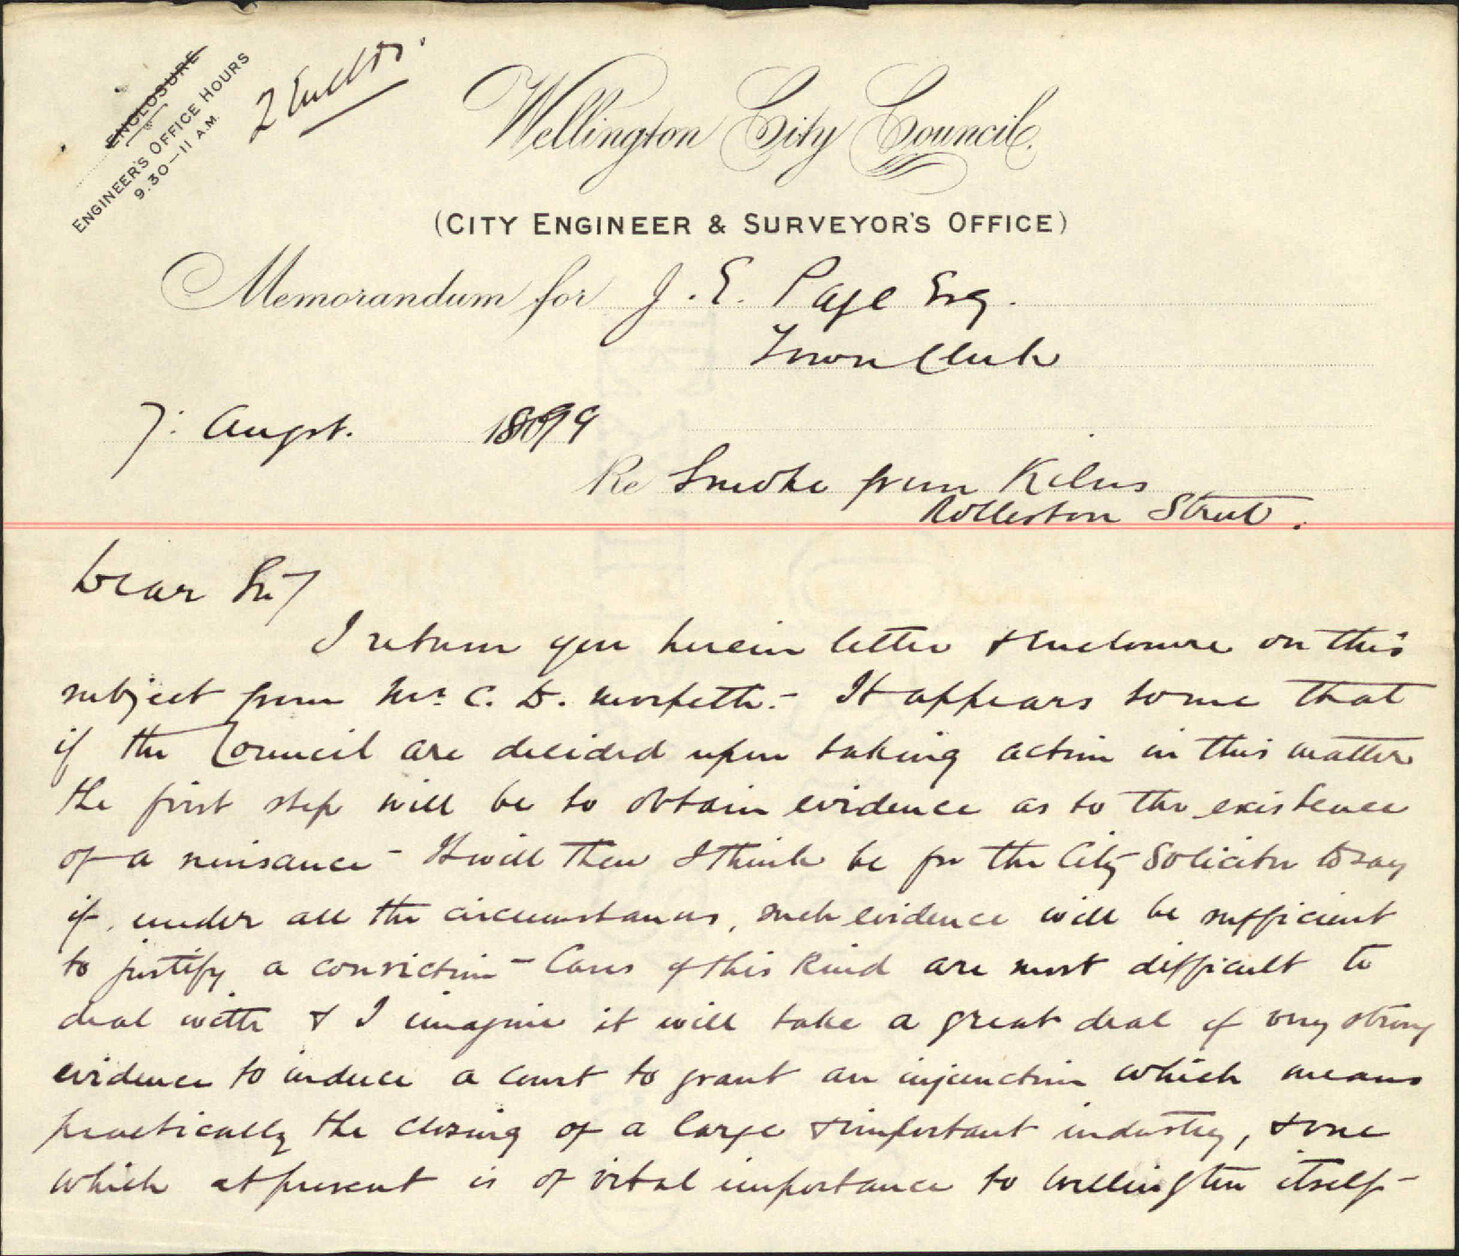 ENCLOSURE
ENGINEER'S OFFICE HOURS
9.30–11 A.M.
2 Encls.
Wellington City Council.
(CITY ENGINEER & SURVEYOR'S OFFICE)
Memorandum for J. E. Page Esq.
Town Clerk
7: Augst. 1899
Re Smoke from Kilns
Rolleston Street.
Dear Sir/
I return you herein letter & enclosure on this
subject from Mr. C. D. Morpeth. - It appears to me that
if the Council are decided upon taking action in this matter
the first step will be to obtain evidence as to the existence
of a nuisance - It will then I think be for the City Solicitor to say
if, under all the circumstances, such evidence will be sufficient
to justify a conviction - Cases of this kind are most difficult to
deal with & I imagine it will take a great deal of very strong
evidence to induce a court to grant an injunction which means
practically the closing of a large & important industry, & one
which at present is of vital importance to Wellington itself -